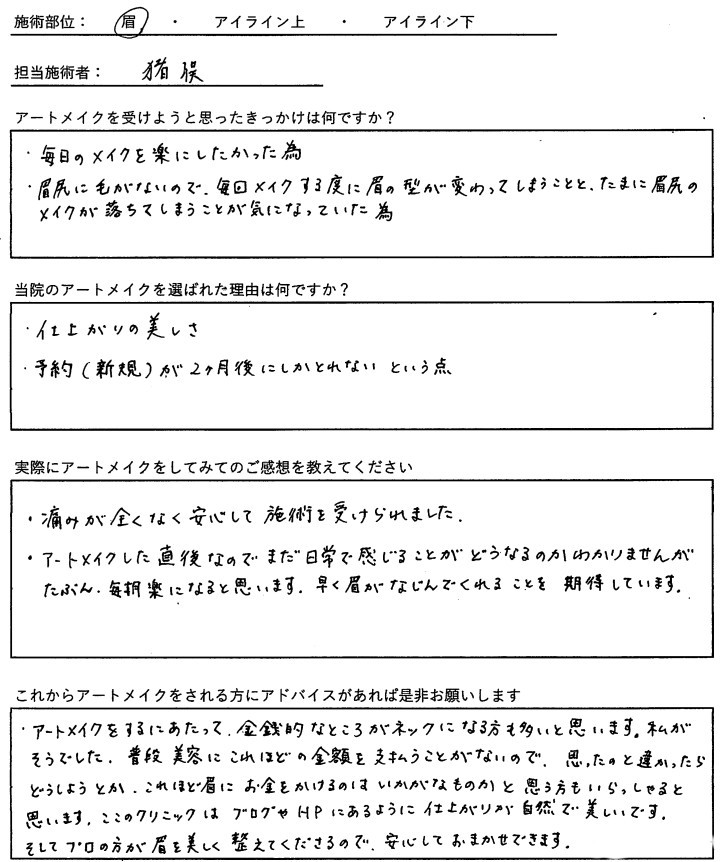 施術部位： 眉 ・ アイライン上 ・ アイライン下
担当施術者： 猪俣
アートメイクを受けようと思ったきっかけは何ですか？
・毎日のメイクを楽にしたかった為
・眉尻に毛がないので、毎回メイクする度に眉の型が変わってしまうことと、たまに眉尻の
メイクが落ちてしまうことが気になっていた為
当院のアートメイクを選ばれた理由は何ですか？
・仕上がりの美しさ
・予約(新規)が2ヶ月後にしかとれないという点
実際にアートメイクをしてみてのご感想を教えてください
・痛みが全くなく安心して施術を受けられました。
・アートメイクした直後なのでまだ日常で感じることがどうなるのかわかりませんが
たぶん、毎朝楽になると思います。早く眉がなじんでくれることを期待しています。
これからアートメイクをされる方にアドバイスがあれば是非お願いします
・アートメイクをするにあたって、金銭的なところがネックになる方も多いと思います。私が
そうでした。普段美容にこれほどの金額を支払うことがないので、思ったのと違かったら
どうしようとか、これほど眉にお金をかけるのはいかがなものかと思う方もいらっしゃると
思います。ここのクリニックはブログやHPにあるように仕上がりが自然で美しいです。
そしてプロの方が眉を美しく整えてくださるので、安心しておまかせできます。